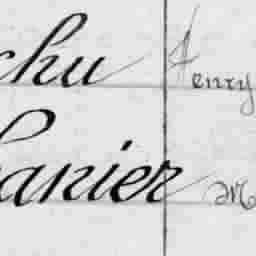 chu Henry
anier M